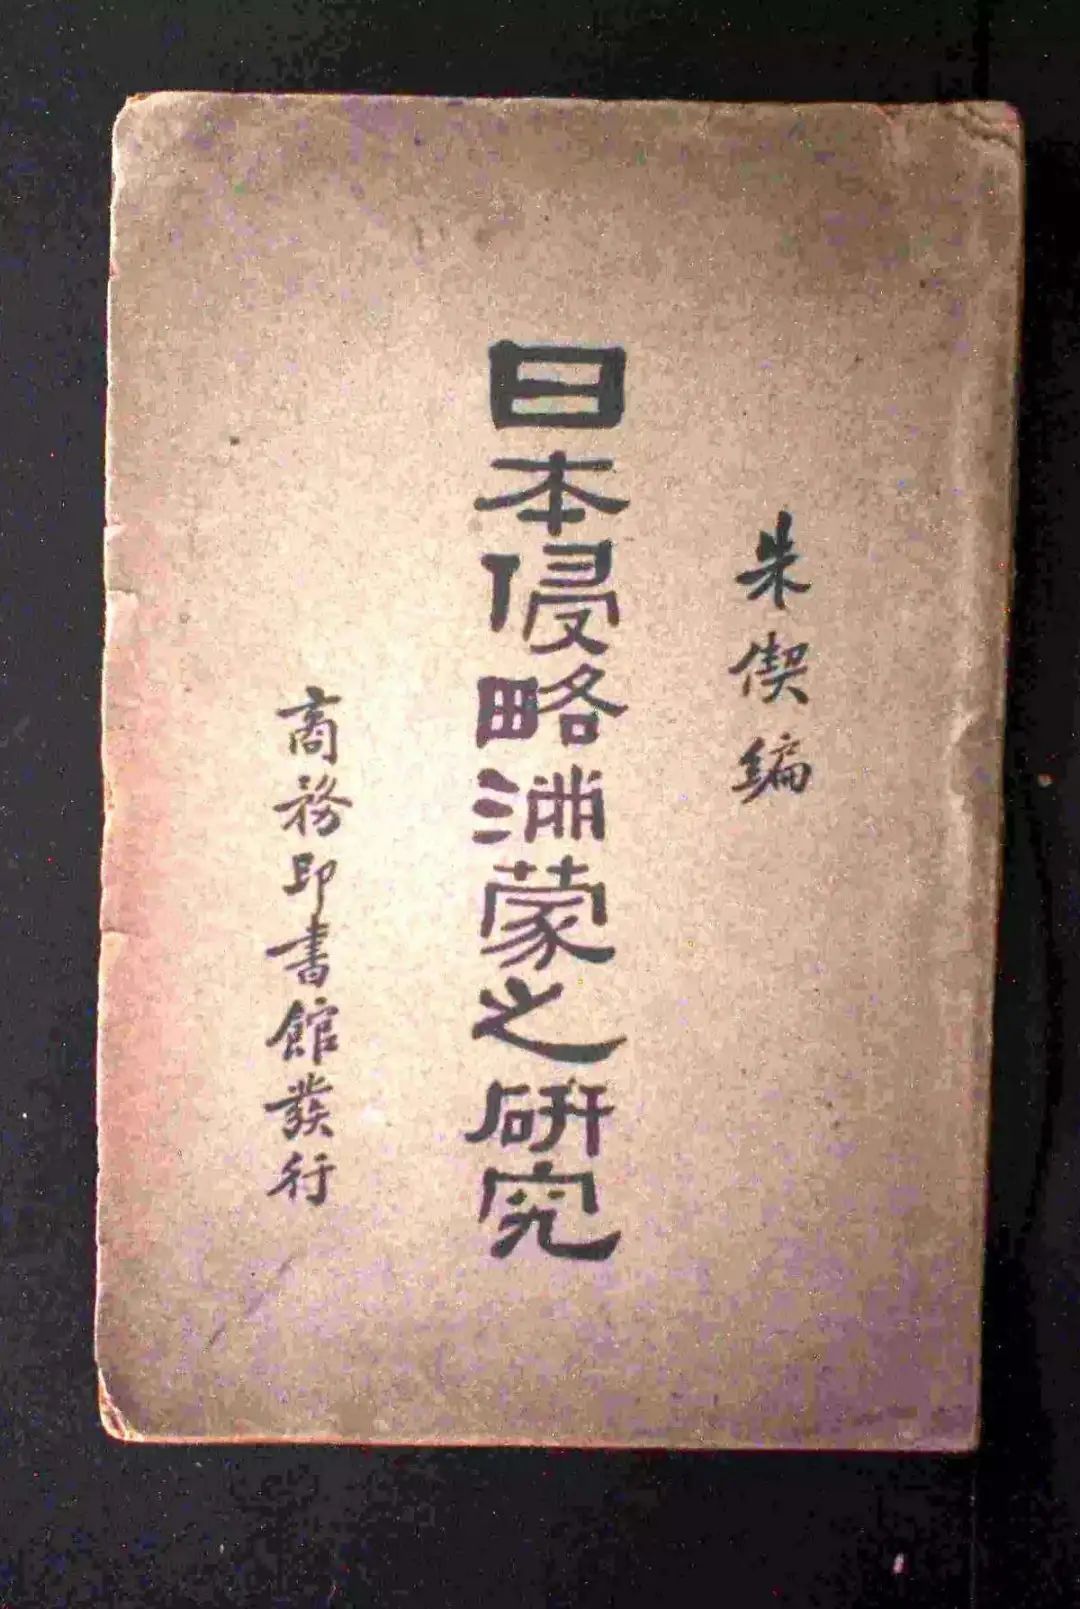 朱偰編
日本侵略滿蒙之研究
商務印書館發行